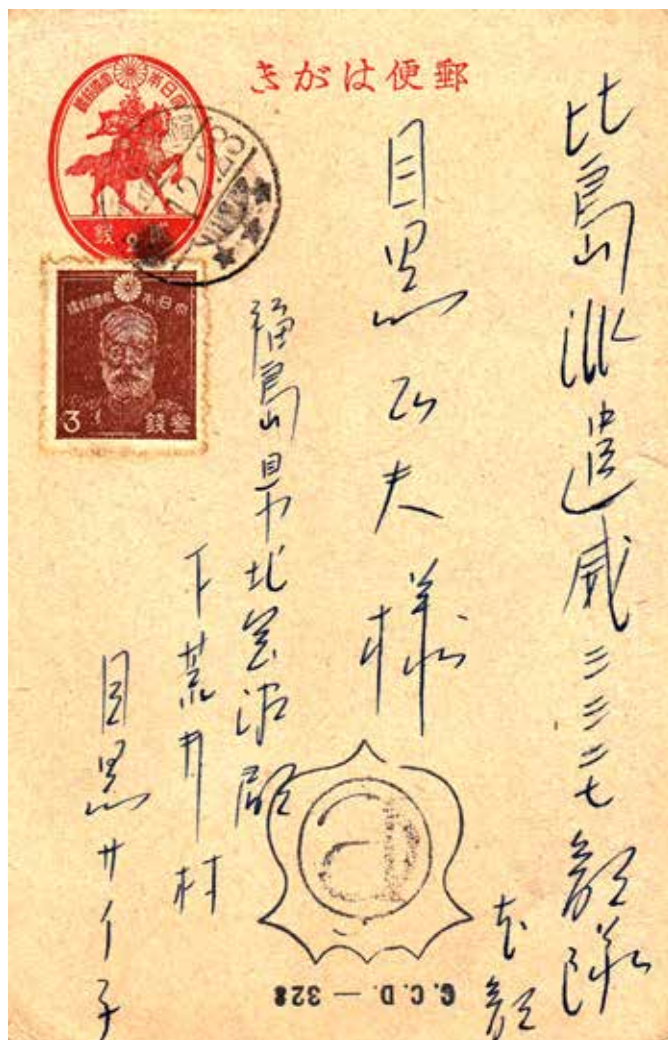 郵便はがき
大日本帝國郵便
12.23
大日本帝國郵便
3
錢
比島派遣威三三二七部隊
本部
目黒 夫様
福島県北会津郡
下荒井村
目黒サイ子
C.C.D. — 328